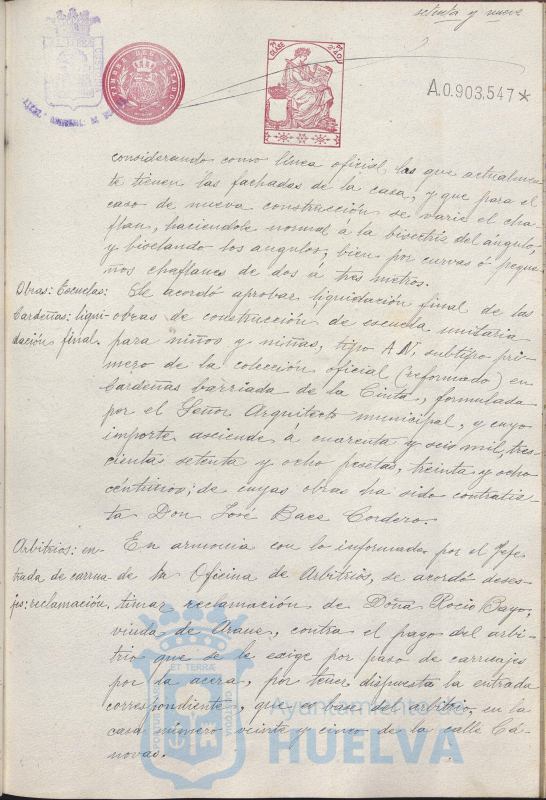 setenta y nueve
TIMBRE DEL ESTADO
CLASE
A.0.903.547*
considerando como línea oficial las que actualmen-
te tienen las fachadas de la casa, y que para el
caso de nueva construcción se varíe el cha-
flan, haciendole normal á la bisectriz del ángulo,
y biselando los angulos, bien por curvas ó peque-
ños chaflanes de dos a tres metros.
Obras: Escuelas:
Cardeñas: liqui-
dación final.
Se acordó aprobar liquidación final de las
obras de construcción de escuela unitaria
para niños y niñas, tipo A.N, subtipo pri-
mero de la colección oficial (reformado) en
Cardeñas barriada de la Cinta, formulada
por el Señor Arquitecto municipal, y cuyo
importe asciende á cuarenta y seis mil, tres-
cientas setenta y ocho pesetas, treinta y ocho
céntimos; de cuyas obras ha sido contratis-
ta Don José Baca Cordero.
Arbitrios: en-
trada de carrua-
jes: reclamación.
En armonia con lo informado por el Jefe
de la Oficina de Arbitrios, se acordó deses-
timar reclamación de Doña Rocio Bayo,
viuda de Arana, contra el pago del arbi-
trio que se le exige por paso de carruajes
por la acera, por tener dispuesta la entrada
correspondiente, que es base del arbitrio, en la
casa número veinte y cinco de la calle Cá-
novas.
PORTUS MARIS ET TERRÆ CUSTODIA
Ayuntamiento de
HUELVA